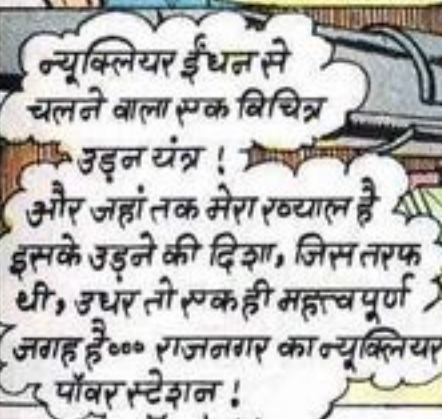 न्यूक्लियर ईंधन से
चलने वाला एक विचित्र
उड़न यंत्र !
और जहां तक मेरा ख्याल है
इसके उड़ने की दिशा, जिस तरफ
थी, उधर तो एक ही महत्त्वपूर्ण
जगह है००० राजनगर का न्यूक्लियर
पॉवर स्टेशन !